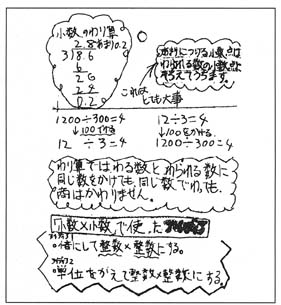 小数のわり算
2.8あまり0.2
3)8.6
6
26
24
0.2
これは
とても大事
あまりにつける小数点は
わられる数の小数点に
そろえてうちます。
1200÷300=4
↓100でわる
12 ÷3=4
12÷3=4
↓100をかける
1200÷300=4
わり算ではわる数とわられる数に
同じ数をかけても、同じ数でわっても、
商はかわりません。
小数×小数で使った
アイデア1
○倍にして整数×整数にする。
アイデア2
○単位をかえて整数×整数にする。